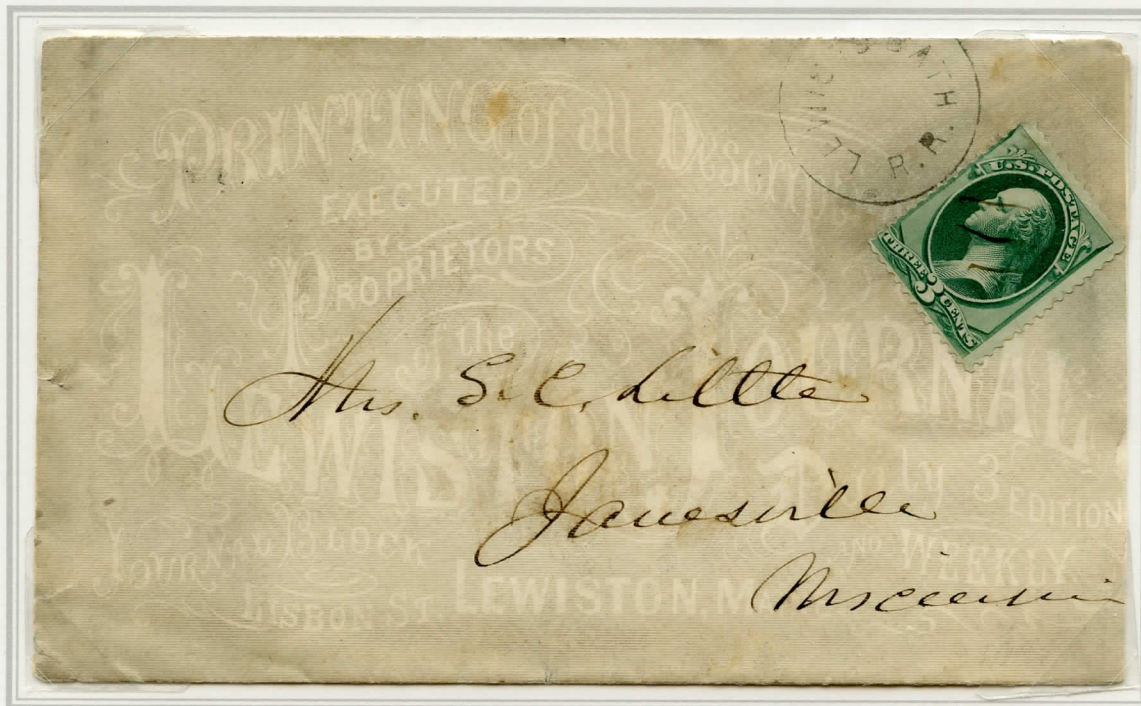 LEWIS & BATH
R. R.
U.S. POSTAGE
THREE 3 CENTS
PRINTING of all Descrip
EXECUTED
BY
PROPRIETORS
of the
LEWISTON JOURNAL
Daily 2 EDITION
AND WEEKLY
JOURNAL BLOCK
LISBON ST. LEWISTON M
Mrs. S. C. Little
Janesville
Wisconsin